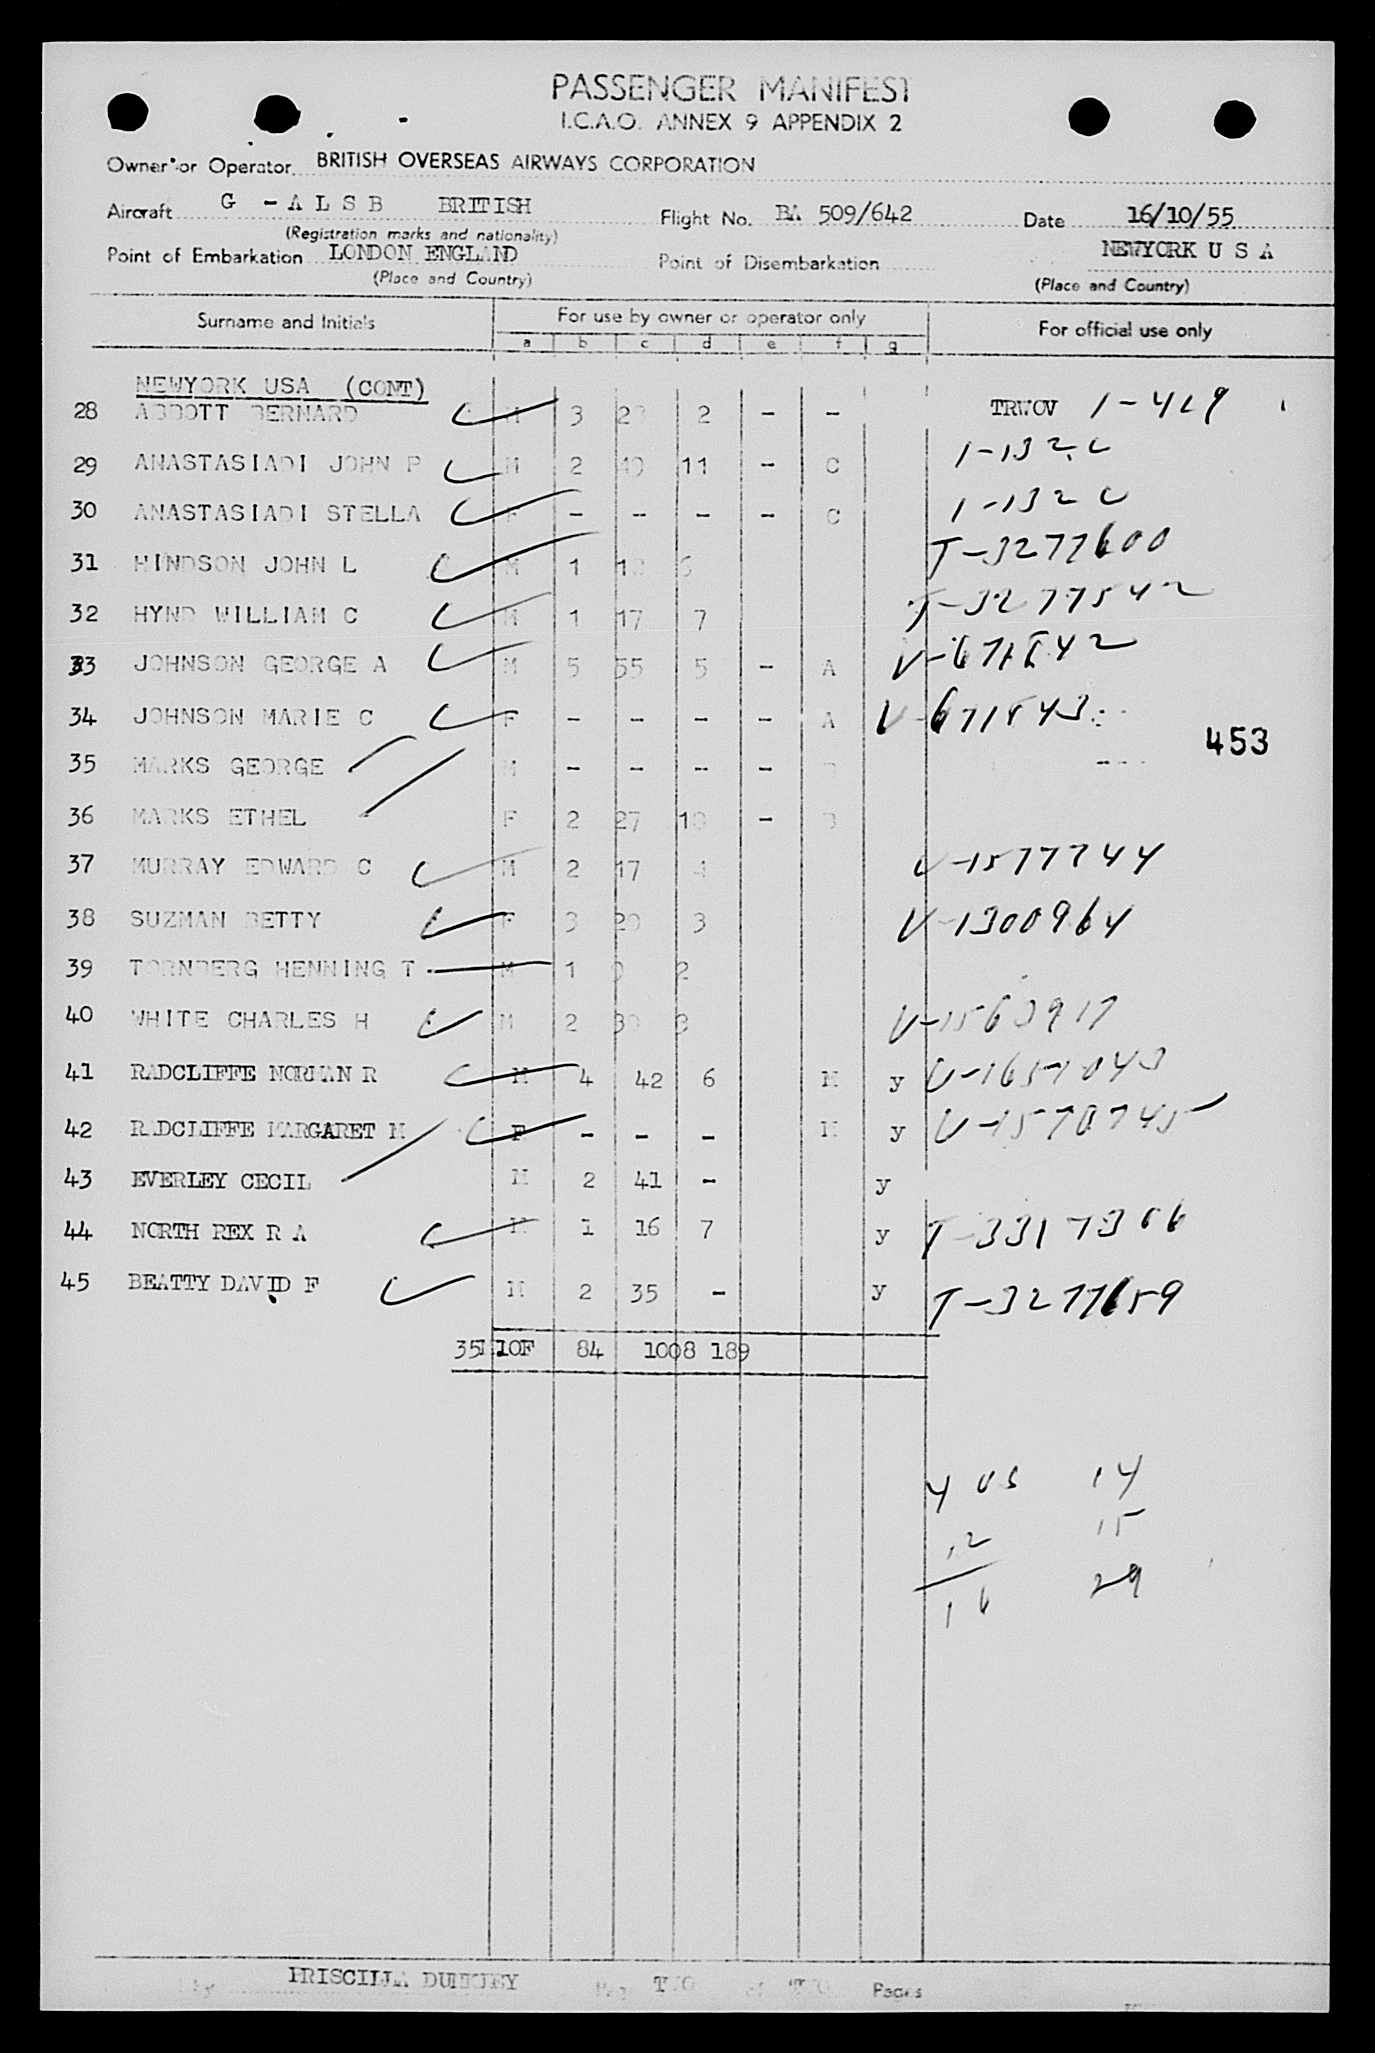 PASSENGER MANIFEST
I.C.A.O. ANNEX 9 APPENDIX 2
Owner or Operator BRITISH OVERSEAS AIRWAYS CORPORATION
Aircraft G - A L S B BRITISH Flight No. BA 509/642 Date 16/10/55
(Registration marks and nationality)
Point of Embarkation LONDON ENGLAND Point of Disembarkation NEWYORK U S A
(Place and Country) (Place and Country)
Surname and Initials For use by owner or operator only For official use only
a b c d e f g
NEWYORK USA (CONT)
28 ABBOTT BERNARD M 3 2 2 - - TRWOV 1-419
29 ANASTASIADI JOHN P M 2 40 11 - C 1-132
30 ANASTASIADI STELLA F - - - - C 1-132
31 HINDSON JOHN L M 1 6 T-3277600
32 HYND WILLIAM C M 1 17 7 T-3277542
33 JOHNSON GEORGE A M 5 55 5 - A V-671542
34 JOHNSON MARIE C F - - - - A V-671543
453
35 MARKS GEORGE M - - - - B
36 MARKS ETHEL F 2 27 10 - B
37 MURRAY EDWARD C M 2 17 4 V-1577744
38 SUZMAN BETTY F 3 20 3 V-1300964
39 TORNBERG HENNING T M 1 2
40 WHITE CHARLES H M 2 30 3 V-1563917
41 RADCLIFFE NORMAN R M 4 42 6 M y V-1657043
42 RADCLIFFE MARGARET M F - - - M y V-1570745
43 EVERLEY CECIL M 2 41 - y
44 NORTH REX R A M 1 16 7 y T-3317306
45 BEATTY DAVID F M 2 35 - y T-3277659
35M 10F 84 1008 189
4 US 14
12 15
16 29
PRISCILLA DUNKLEY Page TWO of TWO Pages